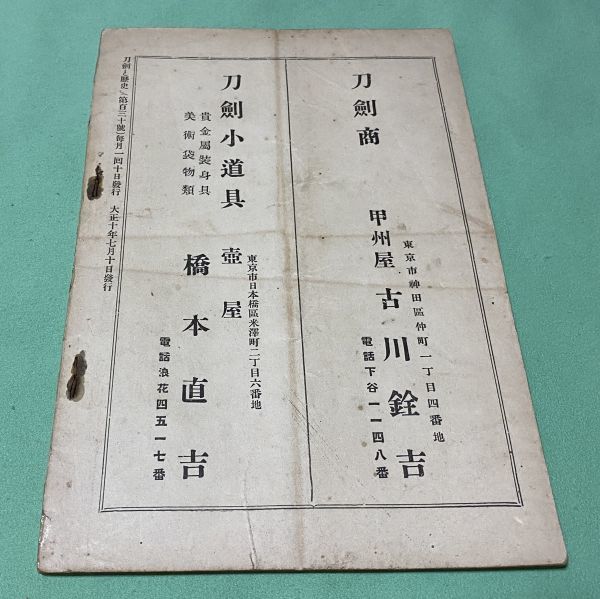 刀劍商
東京市神田區仲町一丁目四番地
甲州屋 古川銓吉
電話下谷一一四八番
刀劍小道具
貴金屬裝身具
美術袋物類
東京市日本橋區米澤町二丁目六番地
壺屋 橋本直吉
電話浪花四五一七番
刀劍と歴史(第百三十號)每月一回十日發行 大正十年七月十日發行